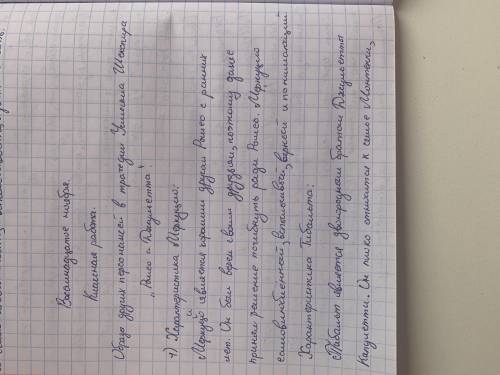 Восемнадцатое ноября.
Классная работа.
Образы других персонажей в трагедии Уильяма Шекспира
„Ромео и Джульетта"
1) Характеристика Меркуцио:
Меркуцио является хорошим другом Ромео с ранних
лет. Он был верен своим друзьям, поэтому даже
принял решение погибнуть ради Ромео. Меркуцио
самовлюблённый, вспыльчивый, верный и понимающий
Характеристика Тибальта:
Тибальт является двоюродным братом Джульетты
Капулетти. Он плохо относится к семье Монтекки,